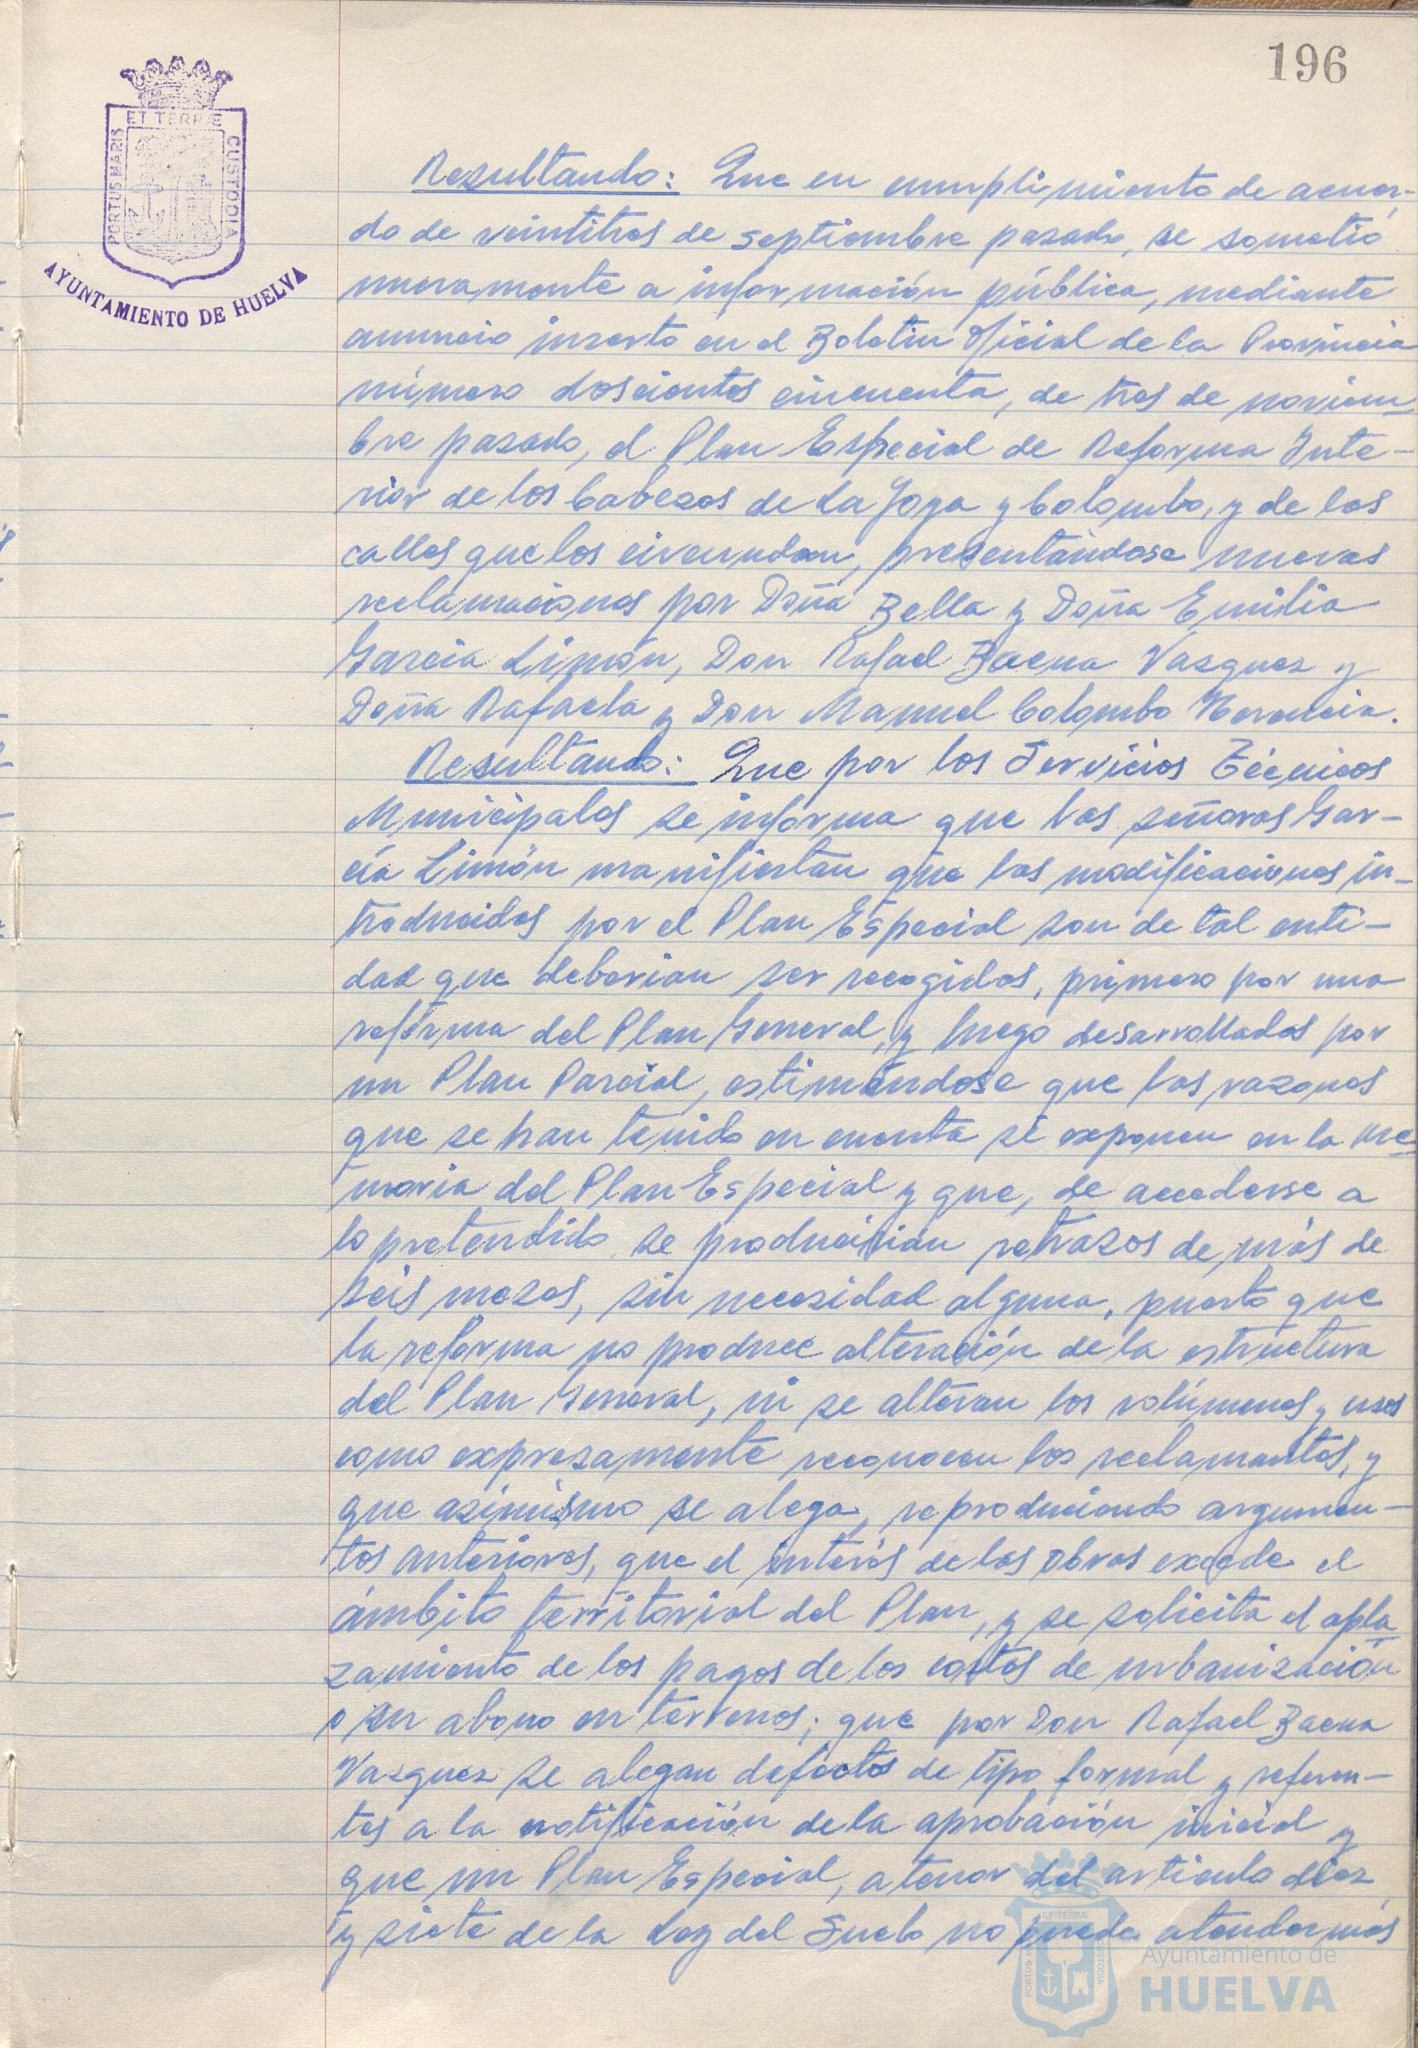 196
ET TERRÆ
PORTUS MARIS
CUSTODIA
AYUNTAMIENTO DE HUELVA
Resultando: Que en cumplimiento de acuer-
do de veintitres de septiembre pasado, se sometió
nuevamente a información pública, mediante
anuncio inserto en el Boletin Oficial de la Provincia
número doscientos cincuenta, de tres de noviem-
bre pasado, el Plan Especial de Reforma Inte-
rior de los Cabezos de La Joya y Colombo, y de las
calles que los circundan, presentándose nuevas
reclamaciones por Doña Bella y Doña Emilia
García Limón, Don Rafael Baena Vazquez y
Doña Rafaela y Don Manuel Colombo
Resultando: Que por los Servicios Técnicos
Municipales se informa que las señoras Gar-
cía Limón manifiestan que las modificaciones in-
troducidas por el Plan Especial son de tal enti-
dad que deberian ser recogidas, primero por una
reforma del Plan General, y luego desarrolladas por
un Plan Parcial, estimándose que las razones
que se han tenido en cuenta se exponen en la me-
moria del Plan Especial y que, de accederse a
lo pretendido se producirian retrazos de más de
seis meses, sin necesidad alguna, puesto que
la reforma no produce alteración de la estructura
del Plan General, ni se alteran los volúmenes y usos
como expresamente reconocen los reclamantes, y
que asimismo se alega, reproduciendo argumen-
tos anteriores, que el interés de las obras excede el
ámbito territorial del Plan, y se solicita el apla-
zamiento de los pagos de los costos de urbanización
o su abono en terrenos; que por Don Rafael Baena
Vazquez se alegan defectos de tipo formal y referen-
tes a la notificación de la aprobación inicial y
que un Plan Especial, a tenor del articulo diez
y siete de la Ley del Suelo no puede atender más
Ayuntamiento de
HUELVA